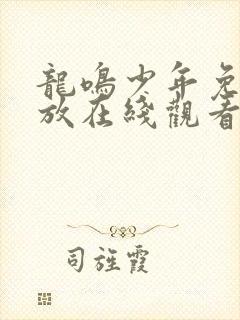 龍鳴少年免
放在綫觀看
司旌霞